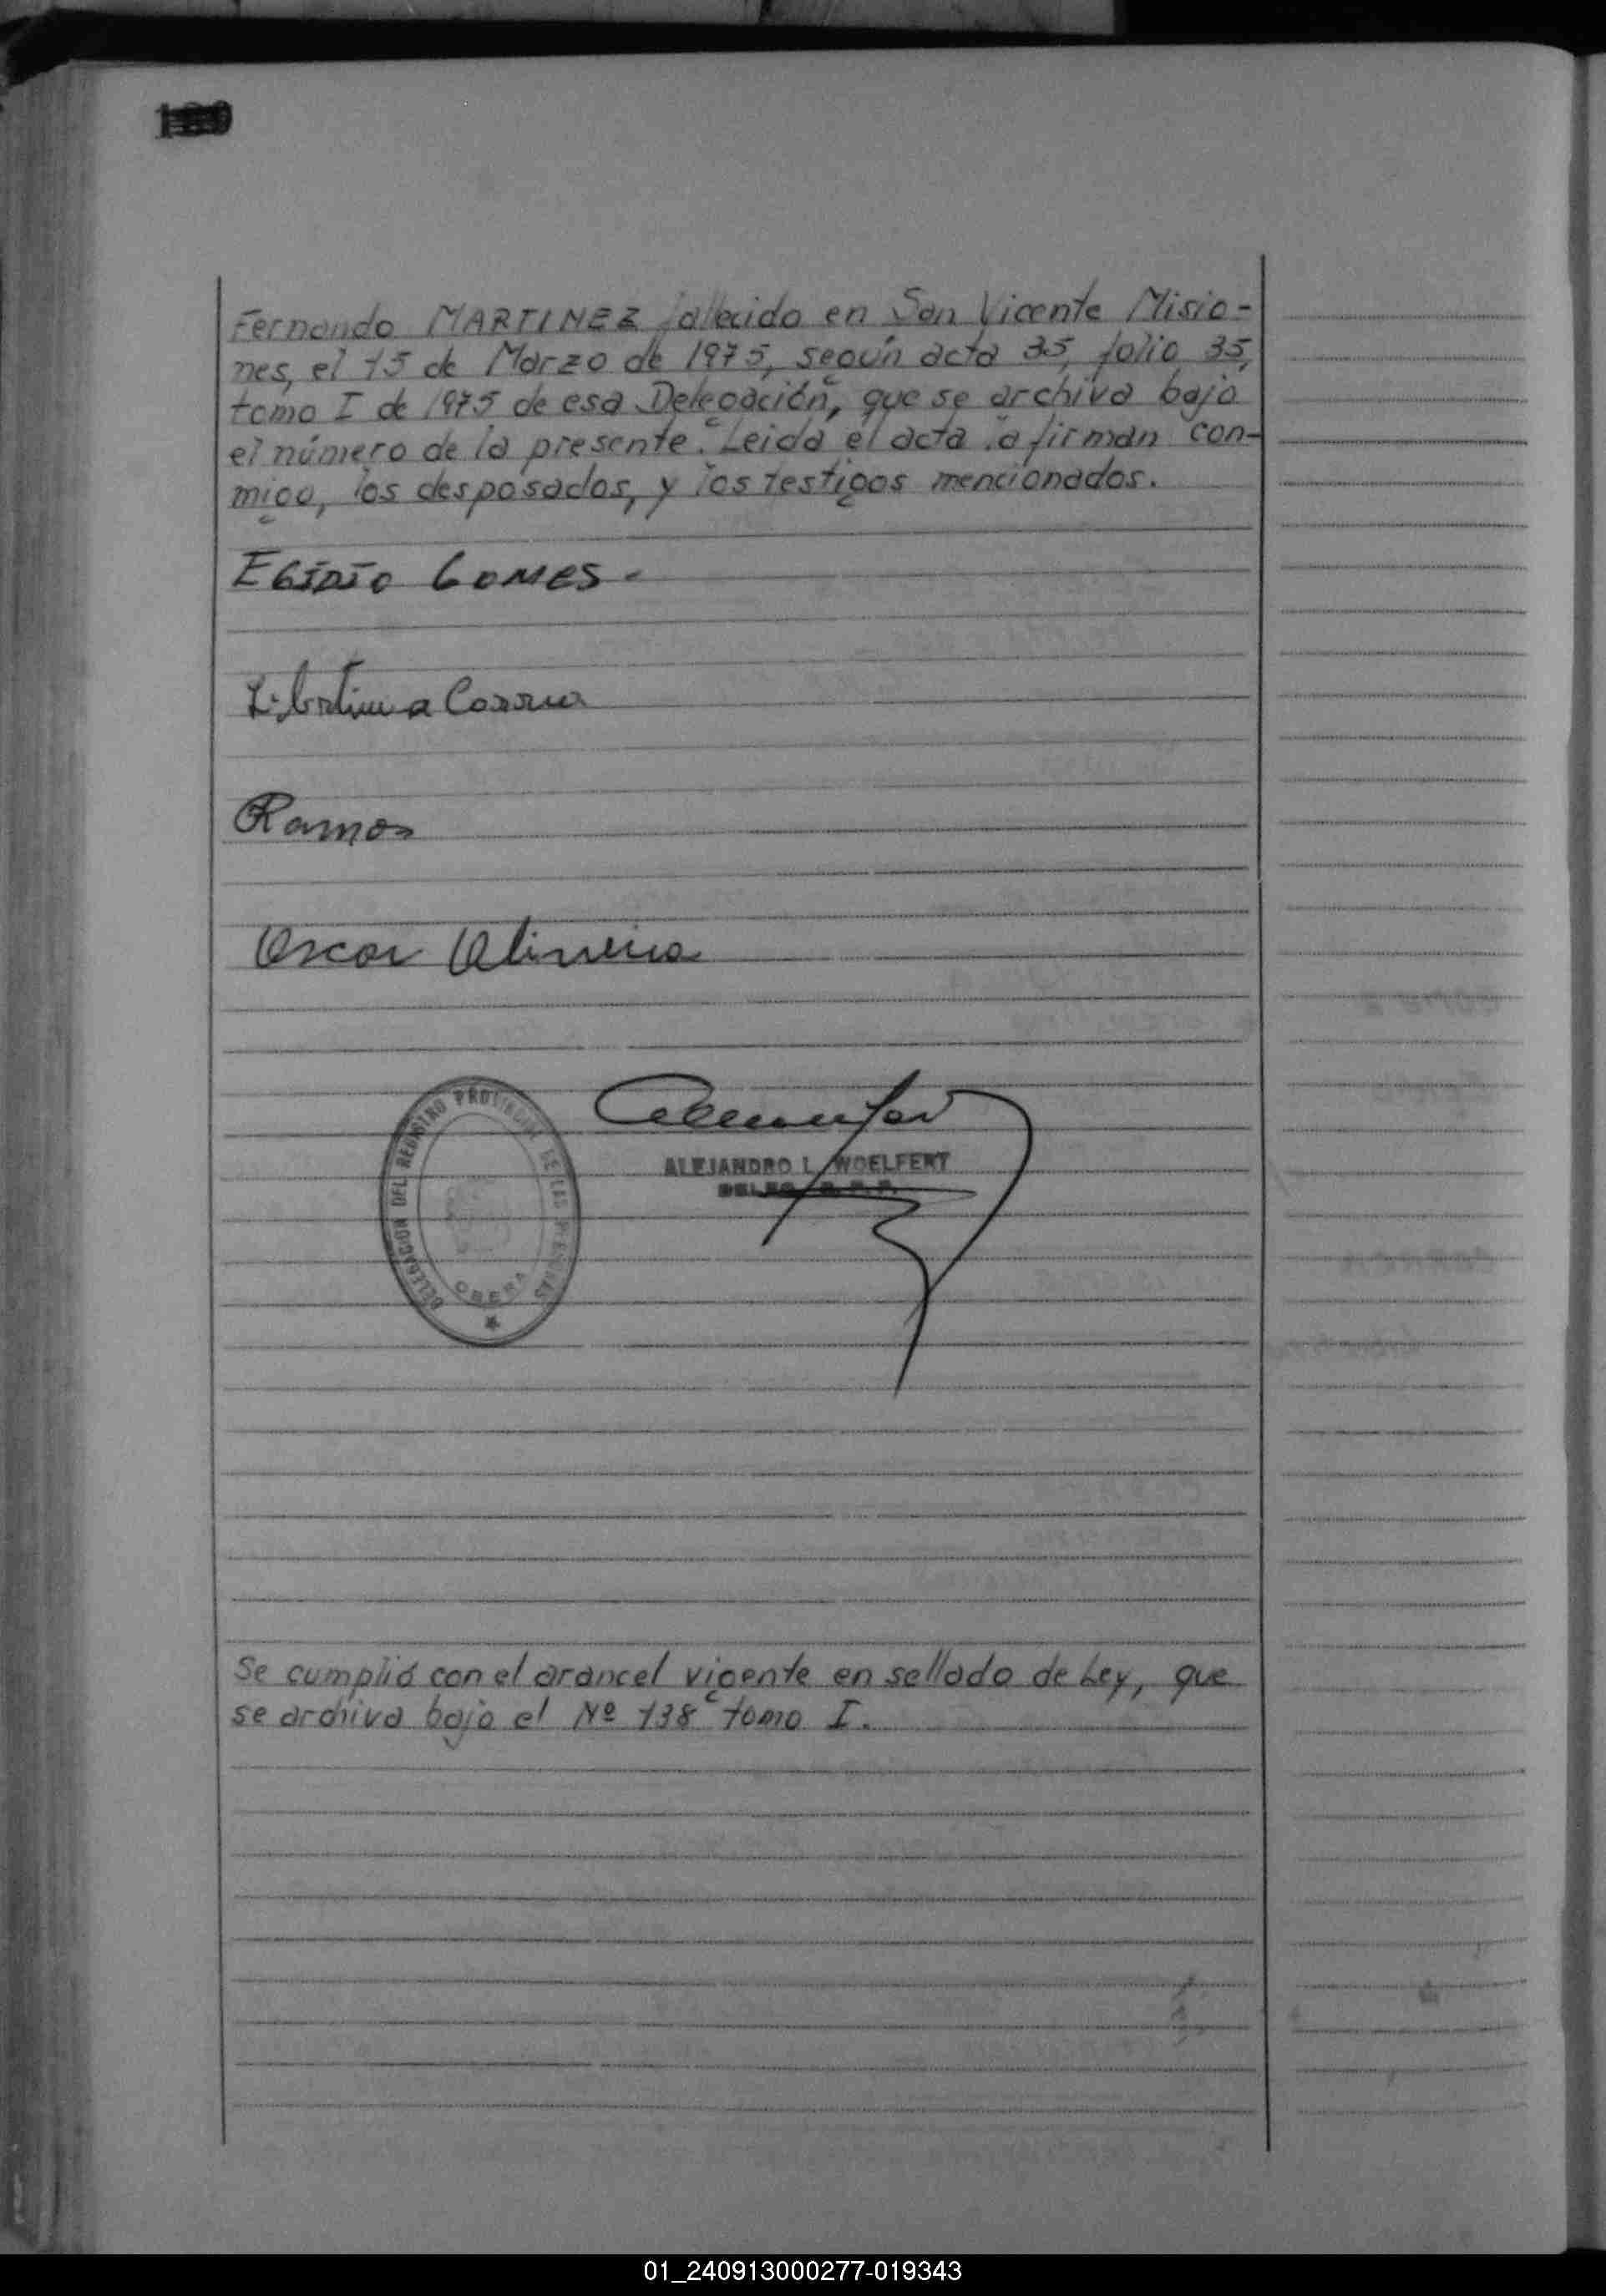 Fernando MARTINEZ fallecido en San Vicente Misio-
nes, el 15 de Marzo de 1975, según acta 35, folio 35,
tomo I de 1975 de esa Delegación, que se archiva bajo
el número de la presente. Leida el acta la firman con-
migo, los desposados, y los testigos mencionados.
EGIDIO GOMES.
Libertina Correa
Ramos
Oscar Oliveira
DELEGACION DEL REGISTRO PROVINCIAL DE LAS PERSONAS
OBERA
ALEJANDRO L. WOELFERT
DELEG. R. P. P.
Se cumplió con el arancel vigente en sellado de Ley, que
se archiva bajo el Nº 138 tomo I.
01_240913000277-019343